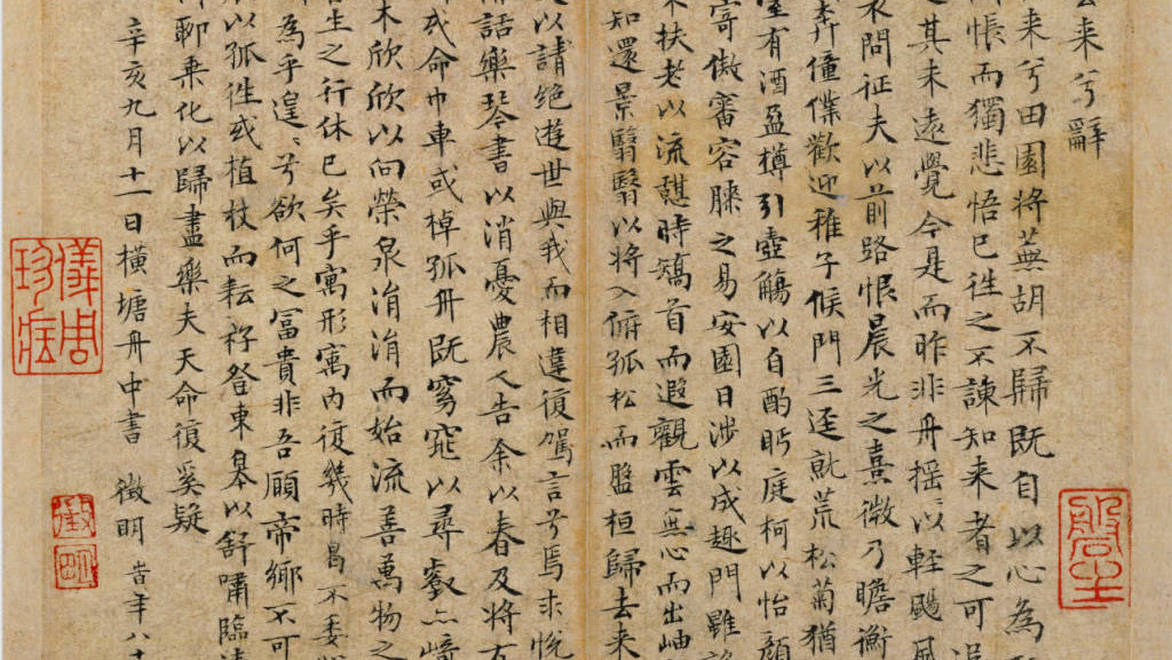 去来兮辭
来兮田園将蕪胡不歸既自以心為
悵而獨悲悟已往之不諫知来者之可追
其未遠覺今是而昨非舟摇〻以輕颺風
衣問征夫以前路恨晨光之熹微乃瞻衡
奔僮僕歡迎稚子候門三逕就荒松菊猶
室有酒盈樽引壺觴以自酌眄庭柯以怡顔
寄傲審容膝之易安園日涉以成趣門雖設
扶老以流憇時矯首而遐觀雲無心而出岫
知還景翳翳以将入俯孤松而盤桓歸去来
以請絶遊世與我而相違復駕言兮焉求悦
話樂琴書以消憂農人告余以春及将有
或命巾車或棹孤舟既窈窕以尋壑亦崎
木欣欣以向榮泉涓涓而始流善萬物之
生之行休已矣乎寓形寓内復幾時曷不委
為乎遑〻兮欲何之冨貴非吾願帝鄉不可
以孤往或植杖而耘耔登東皋以舒嘯臨清
聊乗化以歸盡樂夫天命復奚疑
辛亥九月十一日横塘舟中書 徵明 時年八十
儀周珍藏
徵明